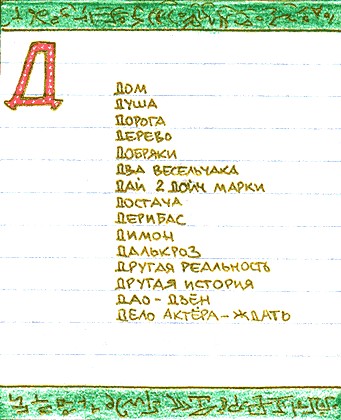 Д
ДОМ
ДУША
ДОРОГА
ДЕРЕВО
ДОБРЯКИ
ДВА ВЕСЕЛЬЧАКА
ДАЙ 2 ДОЙЧ МАРКИ
ДОСТАЧА
ДЕРИБАС
ДИМОН
ДАЛЬКРОЗ
ДРУГАЯ РЕАЛЬНОСТЬ
ДРУГАЯ ИСТОРИЯ
ДАО - ДЗЁН
ДЕЛО АКТЁРА - ЖДАТЬ